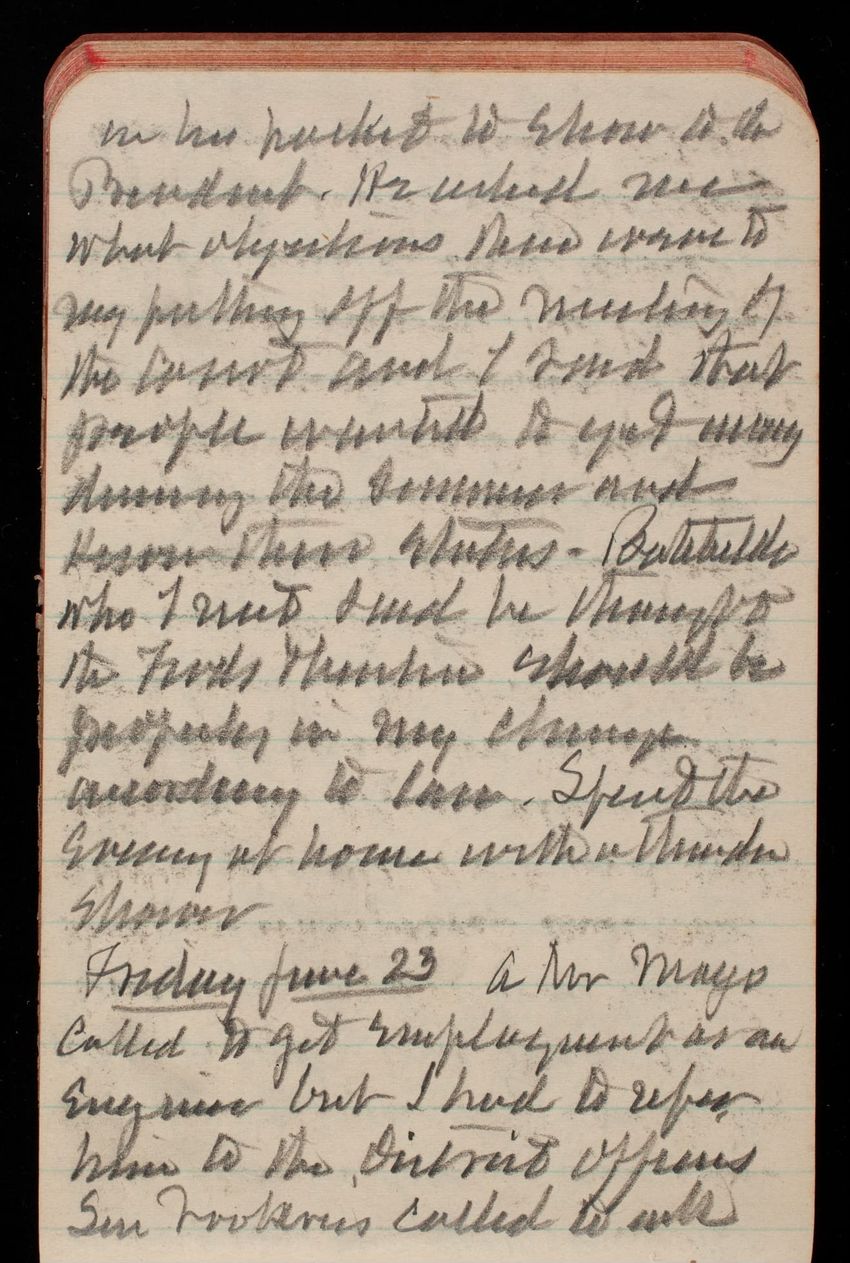 in his pocket to show to the
President. He asked me
what objections there were to
my putting off the meeting of
the Court and I said that
people wanted to get away
during the Summer and
know their status - Batchelder
who I met said he thought
the Fords Theatre should be
properly in my charge
according to law. Spent the
Evening at home with a thunder
Shower
Friday June 23 A Mr Mayo
Called to get Employment as an
Engineer but I had to refer
him to the District officers
Gen called to ask